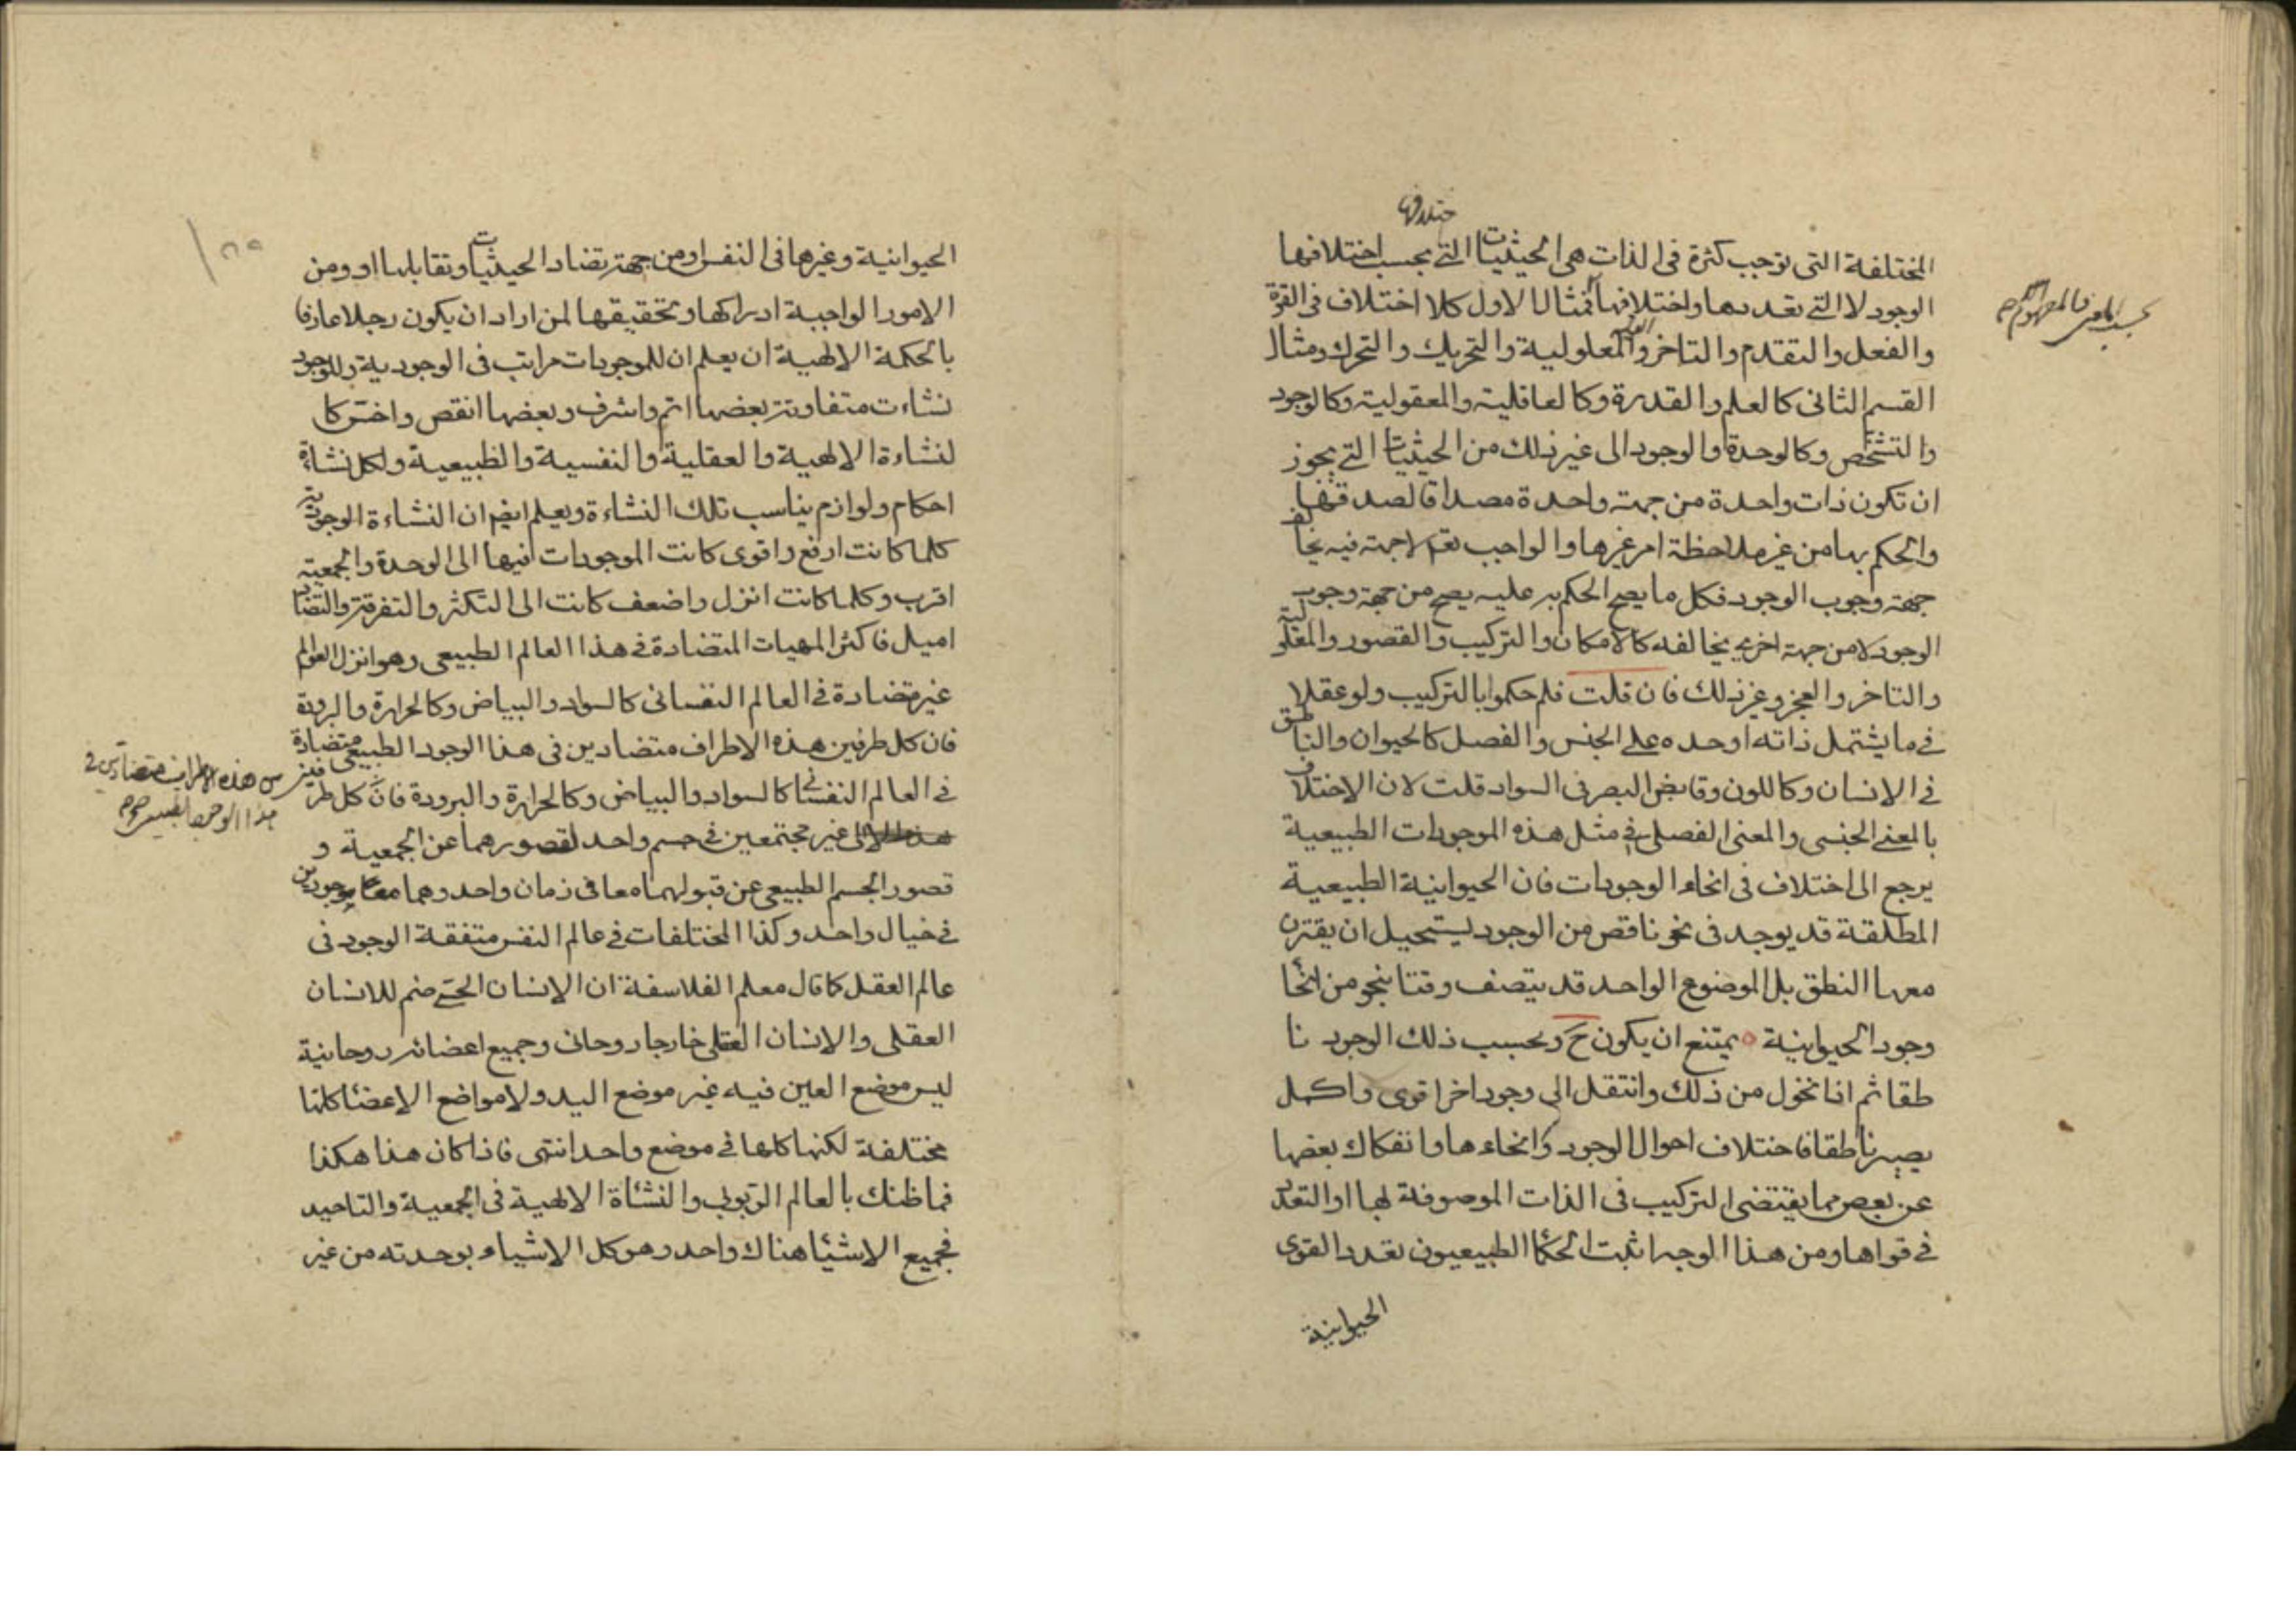 ختلافها
المختلفة التى توجب كثرة فى الذات هى الحيثيات التى بحسب اختلافها
الوجود لا التى تعددها واختلافها فمثال الاول كلا اختلاف فى القوة
بحسب المعنى والمفهوم
والفعل والتقدم والتاخر والمعلولية والتحريك والتحرك ومثال
القسم الثانى كالعلم والقدرة وكالعاقلية والمعقولية وكالوجود
والتشخص وكالوحدة والوجود الى غير ذلك من الحيثيات التى يجوز
ان تكون ذات واحدة من جهة واحدة مصداقا لصدقها
والحكم بها من غير ملاحظة امر غيرها والواجب تعم لا جهة فيه يخالف
جهة وجوب الوجود فكل ما يصح الحكم به عليه يصح من جهة وجوب
الوجود لا من جهة اخرى يخالفه كالامكان والتركيب والقصور والمعلولية
والتاخر والعجز وغير ذلك فان قلت فلم حكموا بالتركيب ولو عقلا
فى ما يشتمل ذاته او حده على الجنس والفصل كالحيوان والناطق
فى الانسان وكاللون وقابض البصر فى السواد قلت لان الاختلاف
بالمعنى الجنسى والمعنى الفصلى فى مثل هذه الموجودات الطبيعية
يرجع الى اختلاف فى انحاء الوجودات فان الحيوانية الطبيعية
المطلقة قد يوجد فى نحو ناقص من الوجود يستحيل ان يقترن
معها النطق بل الموضوع الواحد قد يتصف وقتا بنحو من انحا
وجود الحيوانية يمتنع ان يكون ح وبحسب ذلك الوجود نا
طقا ثم اذا تحول من ذلك وانتقل الى وجود اخر اقوى واكمل
يصير ناطقا فاختلاف احوال الوجود وانحاءها وانفكاك بعضها
عن بعض مما يقتضى التركيب فى الذات الموصوفة لها او التعدد
فى قواها ومن هذا الوجه اثبت الحكما الطبيعيون تعدد القوى
الحيوانية
الحيوانية وغيرها فى النفس او من جهة تضاد الحيثيات وتقابلها او ومن
الامور الواجبة ادراكها وتحقيقها لمن اراد ان يكون رجلا عارفا
بالحكمة الالهية ان يعلم ان للموجودات مراتب فى الوجودية وللوجود
نشاءت متفاوتة بعضها اتم واشرف وبعضها انقص واخس كا
لنشاءة الالهية والعقلية والنفسية والطبيعية ولكل نشاءة
احكام ولوازم يناسب تلك النشاءة ويعلم ايضم ان النشاءة الوجودية
كلما كانت ارفع واقوى كانت الموجودات فيها الى الوحدة والجمعية
اقرب وكلما كانت انزل واضعف كانت الى التكثر والتفرقة والتضاد
اميل فاكثر المهيات المتضادة فى هذا العالم الطبيعى وهو انزل العوالم
غير متضادة فى العالم النفسانى كالسواد والبياض وكالحرارة والبرودة
فان كل طرفين هذه الاطراف متضادين فى هذا الوجود الطبيعى متضادة
فى العالم النفسانى كالسواد والبياض وكالحرارة والبرودة فان كل طر
فين من هذه الاطراف متضادين فى
هذا الوجود الطبيعى
غير مجتمعين فى جسم واحد لقصورهما عن الجمعية و
قصور الجسم الطبيعى عن قبولهما معا فى زمان واحد وهما معا موجودين
فى خيال واحد وكذا المختلفات فى عالم النفس متفقة الوجود فى
عالم العقل كا قال معلم الفلاسفة ان الانسان الحسى صنم للانسان
العقلى والانسان العقلى خارجا روحانى وجميع اعضائه روحانية
ليس موضع العين فيه غير موضع اليد ولا مواضع الاعضا كلها
مختلفة لكنها كلها فى موضع واحد انتهى فاذا كان هذا هكذا
فما ظنك بالعالم الربوبى والنشاة الالهية فى الجمعية والتاحيد
فجميع الاشيا هناك واحد وهو كل الاشياء بوحدته من غير